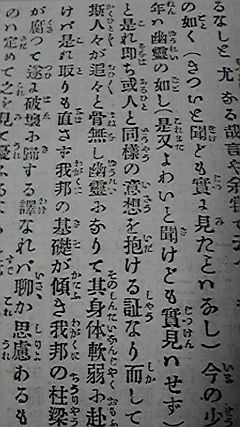 るなしと尤なる哉言や余嘗て
の如く(きついと聞ども實に見たといなし)今の少
年ハ幽靈の如し(是又よわいと聞けども實見ハせず)
と是れ即ち或人と同様の意想を抱ける証なり而して
斯人々が追々と骨無し幽靈となりて其身体軟弱に赴
けバ是れ取りも直さず我邦の基礎が傾き我邦の柱梁
が腐つて遂に破壊に歸する譯なれバ聊か思慮あるも
のハ定めて之を見て憂ふ